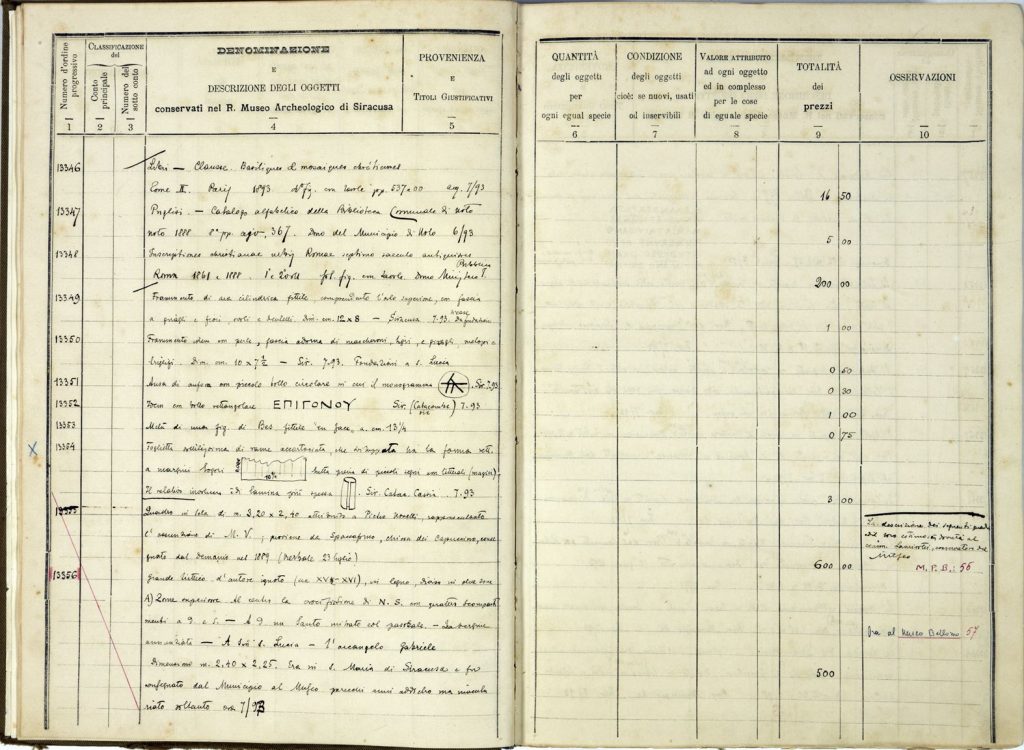 Numero d'ordine progressivo
CLASSIFICAZIONE del
Conto principale
Numero del sotto conto
DENOMINAZIONE
E
DESCRIZIONE DEGLI OGGETTI
conservati nel R. Museo Archeologico di Siracusa
PROVENIENZA
E
TITOLI GIUSTIFICATIVI
1 2 3 4 5
13346 Libri — Clausse. Basiliques et mosaiques chrétiennes
Tome II. Paris 1893 4° fig. con tavole pp. 537 acq. 7/93
13347 Pugliesi. — Catalogo alfabetico della Biblioteca Comunale di Noto
Noto 1888 8° pp. 367. Dono del Municipio di Noto 6/93
13348 Inscriptiones christianae urbis Romae septimo saeculo antiquiores
Roma 1861 e 1888. 1° e 2° vol. fol. fig. con tavole. Dono Minist. Pubblica I.
13349 Frammento di ara cilindrica fittile, comprendente l'orlo superiore, con fascia
a e fiori, ovoli e dentelli. Dim. cm. 12 x 8 — Siracusa 7.93. da fondazioni
13350 Frammento idem con perle, fascia adorna di mascheroni, metopi e
triglifi. Dim. cm. 10 x 7 ½ — Sir. 7.93. Fondazioni a S. Lucia
13351 Ansa di anfora con piccolo bollo circolare in cui il monogramma Sir. 7.93
13352 Idem con bollo rettangolare ΕΠΙΓΟΝΟΥ Sir. (Catacombe) 7.93
13353 Metà di una fig. di Bes fittile in faccia a. cm. 13½
13354 Foglietto sottilissimo di rame accartocciato, che sviluppata ha la forma rett.
a margini logori tutta piena di piccoli segni con letterali (magici),
Il relativo involucro di lamina più spessa. Sir. Catac. Cassia. 7.93
13355 Quadro in tela di m. 3,20 x 2,40 attribuito a Pietro Novelli, rappresentante
l'ascensione di M. V.; proviene da Spaccaforno, chiesa dei Cappuccini, conse
gnato dal Demanio nel 1889 (Verbale 23 luglio)
13356 Grande trittico d'autore ignoto (sec XV-XVI), in legno, diviso in due zone
A) Zona superiore Al centro la crocifissione di N. S. con quattro scomparti
menti a d. e s. — A d un Santo mitrato col pastorale. — La vergine
annunziata — A sin S. Lucia — l'arcangelo Gabriele
Dimensioni m. 2.40 x 2.25. Era in S. Maria di Siracusa e fu
consegnato dal Municipio al Museo parecchi anni addietro ma inventa
riato soltanto ora 7/93
X
QUANTITÀ
degli oggetti
per
ogni egual specie
CONDIZIONE
degli oggetti
cioè: se nuovi, usati
od inservibili
VALORE ATTRIBUITO
ad ogni oggetto
ed in complesso
per le cose
di eguale specie
TOTALITÀ
dei
prezzi
OSSERVAZIONI
6 7 8 9 10
16 50
5 00
200 00
1 00
0 50
0 30
1 00
0 75
3 00
600 00
500
La descrizione dei seguenti quadri
del loro
conservatore del
Museo
M. P. B.: 56
Ora al Museo Bellomo 57